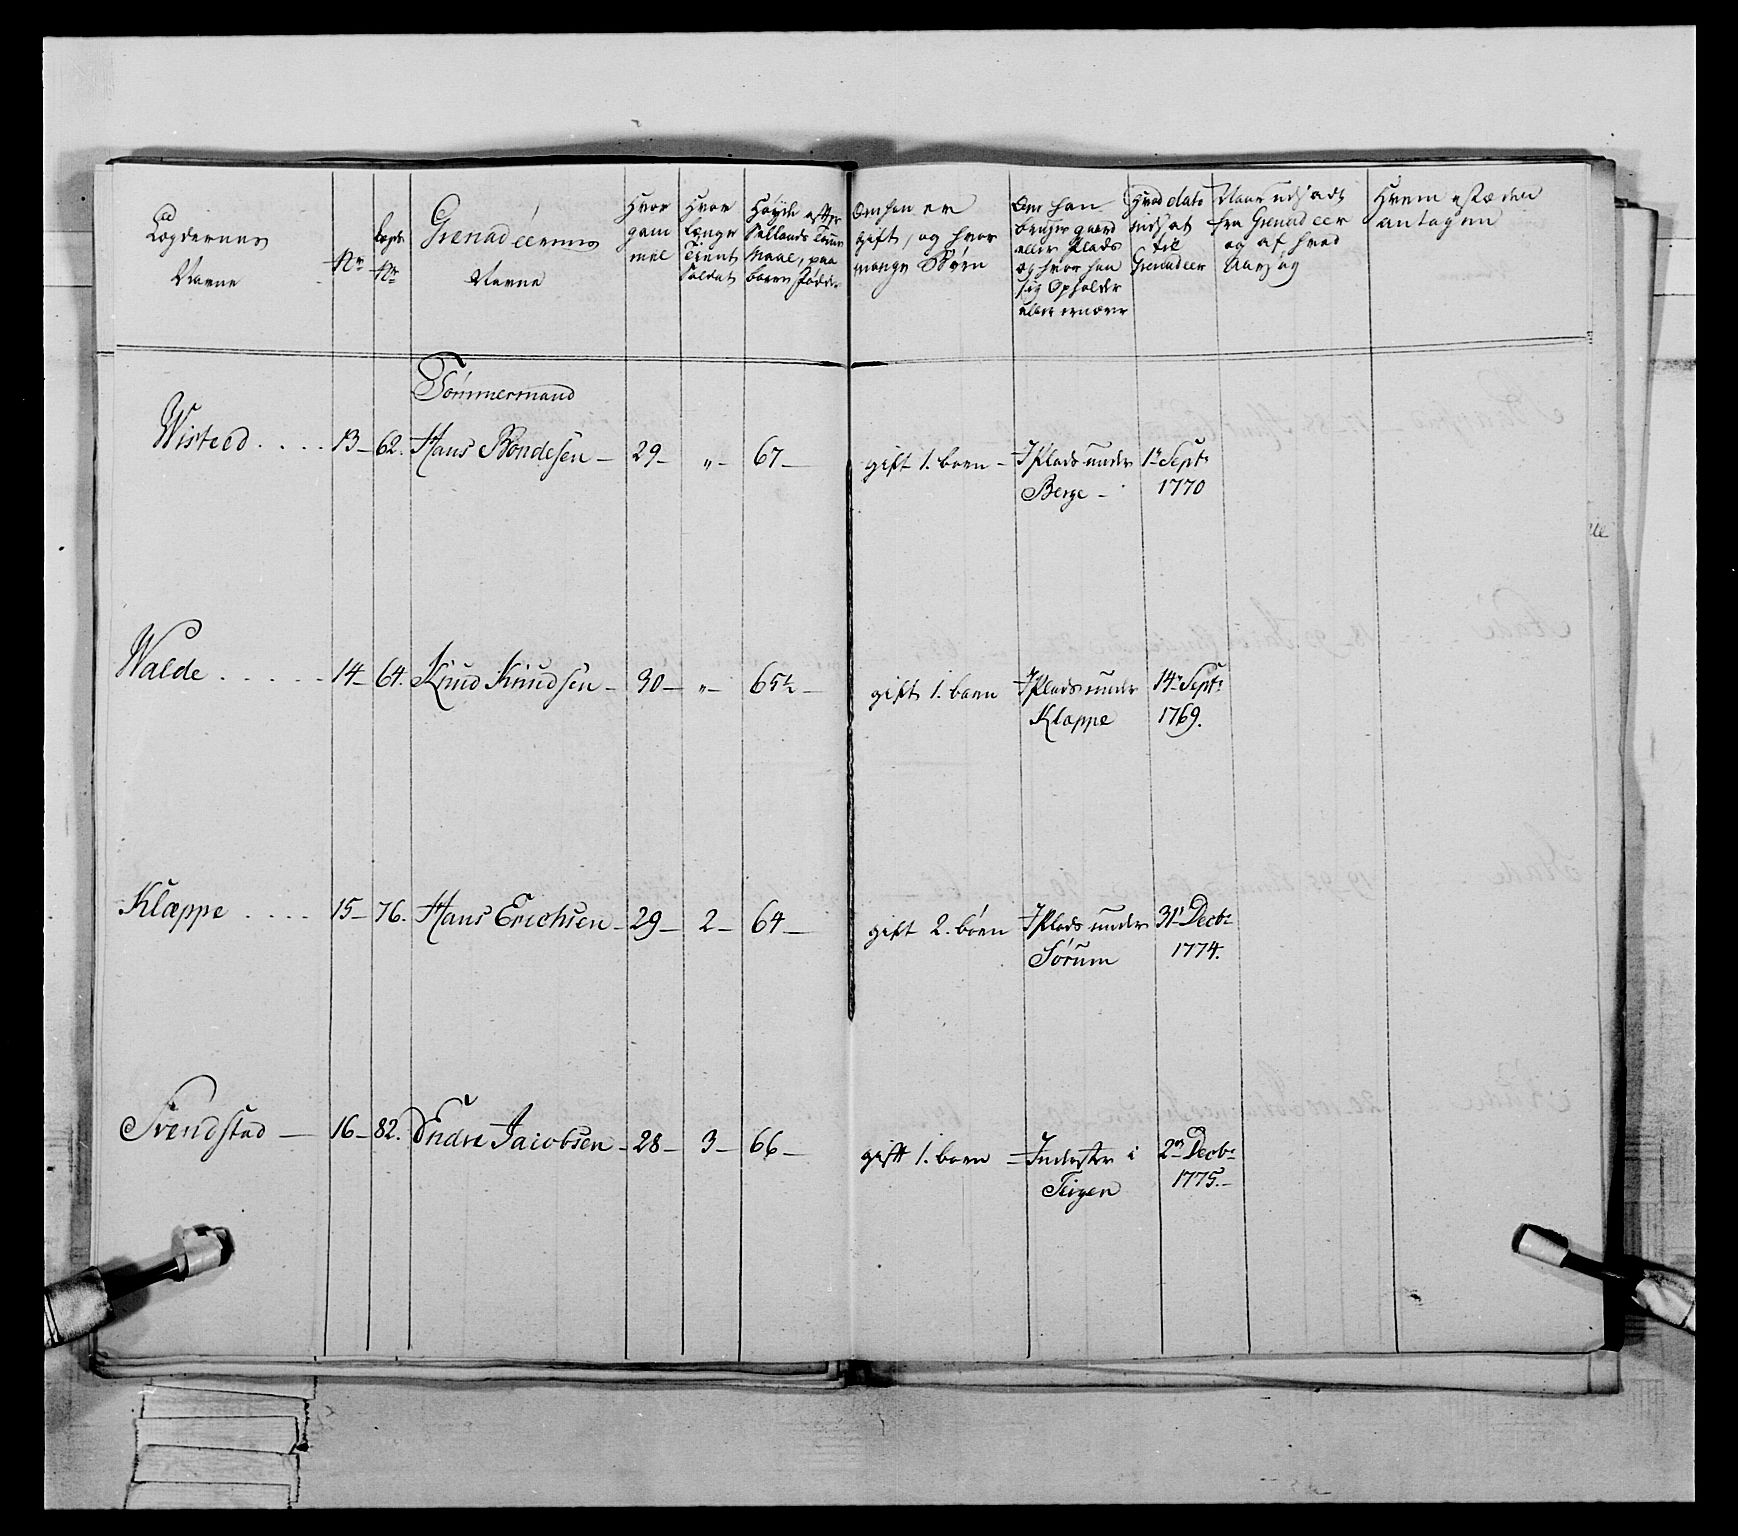 Lægdernes Navne
Nr
Lægds Nr
Grenadeerernes Navne
Hvor gam mel
Hvor længe Tient Soldat
Høyde efter Sællands Tomme Maal, paa barre Fødder
Om han er gift, og hvor mange Børn
Om han bruger gaard eller Plads og hvor han sig Opholder eller ernærer
Hvad dato udsat til Grenadeer
Naar udsadt fra Grenadeer og af hvad Aarsag
Hvem i Stæden antagen
Tømmermand
Wisteed . . . . 13 – 62. Hans Bondesen – 29 – „ – 67 – gift 1. barn – I Plads under Berge – 1te Septr 1770
Walde . . . . . 14 – 64. Knud Knudsen – 30 – „ – 65½ – gift 1. barn I Plads under Klæppe 14de Septr 1769.
Klæppe . . . . 15 – 76. Hans Erichsen – 29 – 2 – 64 – gift 2. børn I Plads under Sørum 31te Decbr 1774.
Svendstad – 16 – 82. Endre Jacobsen – 28 – 3 – 66 – gift 1. barn – Inderster i Teigen 2den Decbr 1775. –